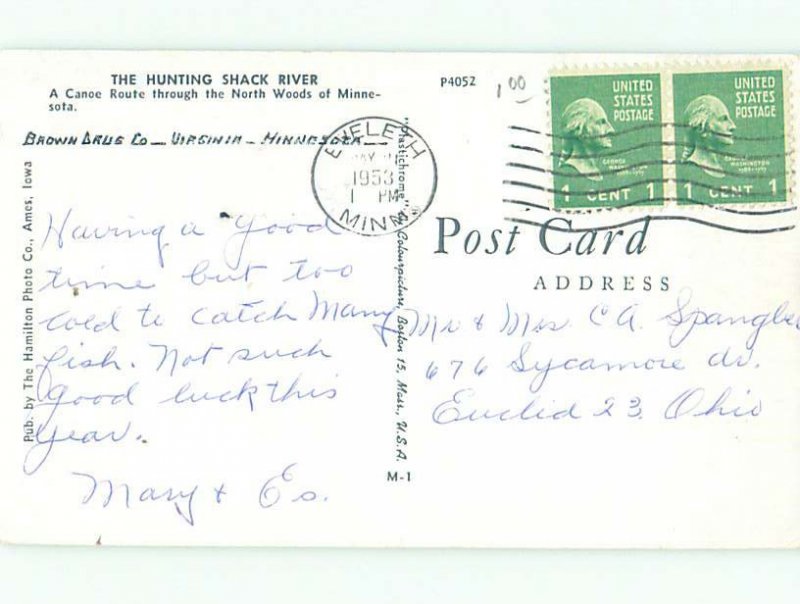 THE HUNTING SHACK RIVER
A Canoe Route through the North Woods of Minne-
sota.
BROWN DRUG CO — VIRGINIA — MINNESOTA —
Pub. by The Hamilton Photo Co., Ames, Iowa
Having a Good
time but too
cold to catch Many
fish. Not such
good luck this
year.
Mary & Es.
"Plastichrome" ® by Colourpicture, Boston 15, Mass., U.S.A.
M-1
P4052
1 00
EVELETH
1953
1 PM
MINN
UNITED
STATES
POSTAGE
GEORGE
1 CENT 1
UNITED
STATES
POSTAGE
GEORGE
WASHINGTON
1 CENT 1
Post Card
ADDRESS
Mr & Mrs. C A. Spangler
676 Sycamore dr.
Euclid 23, Ohio